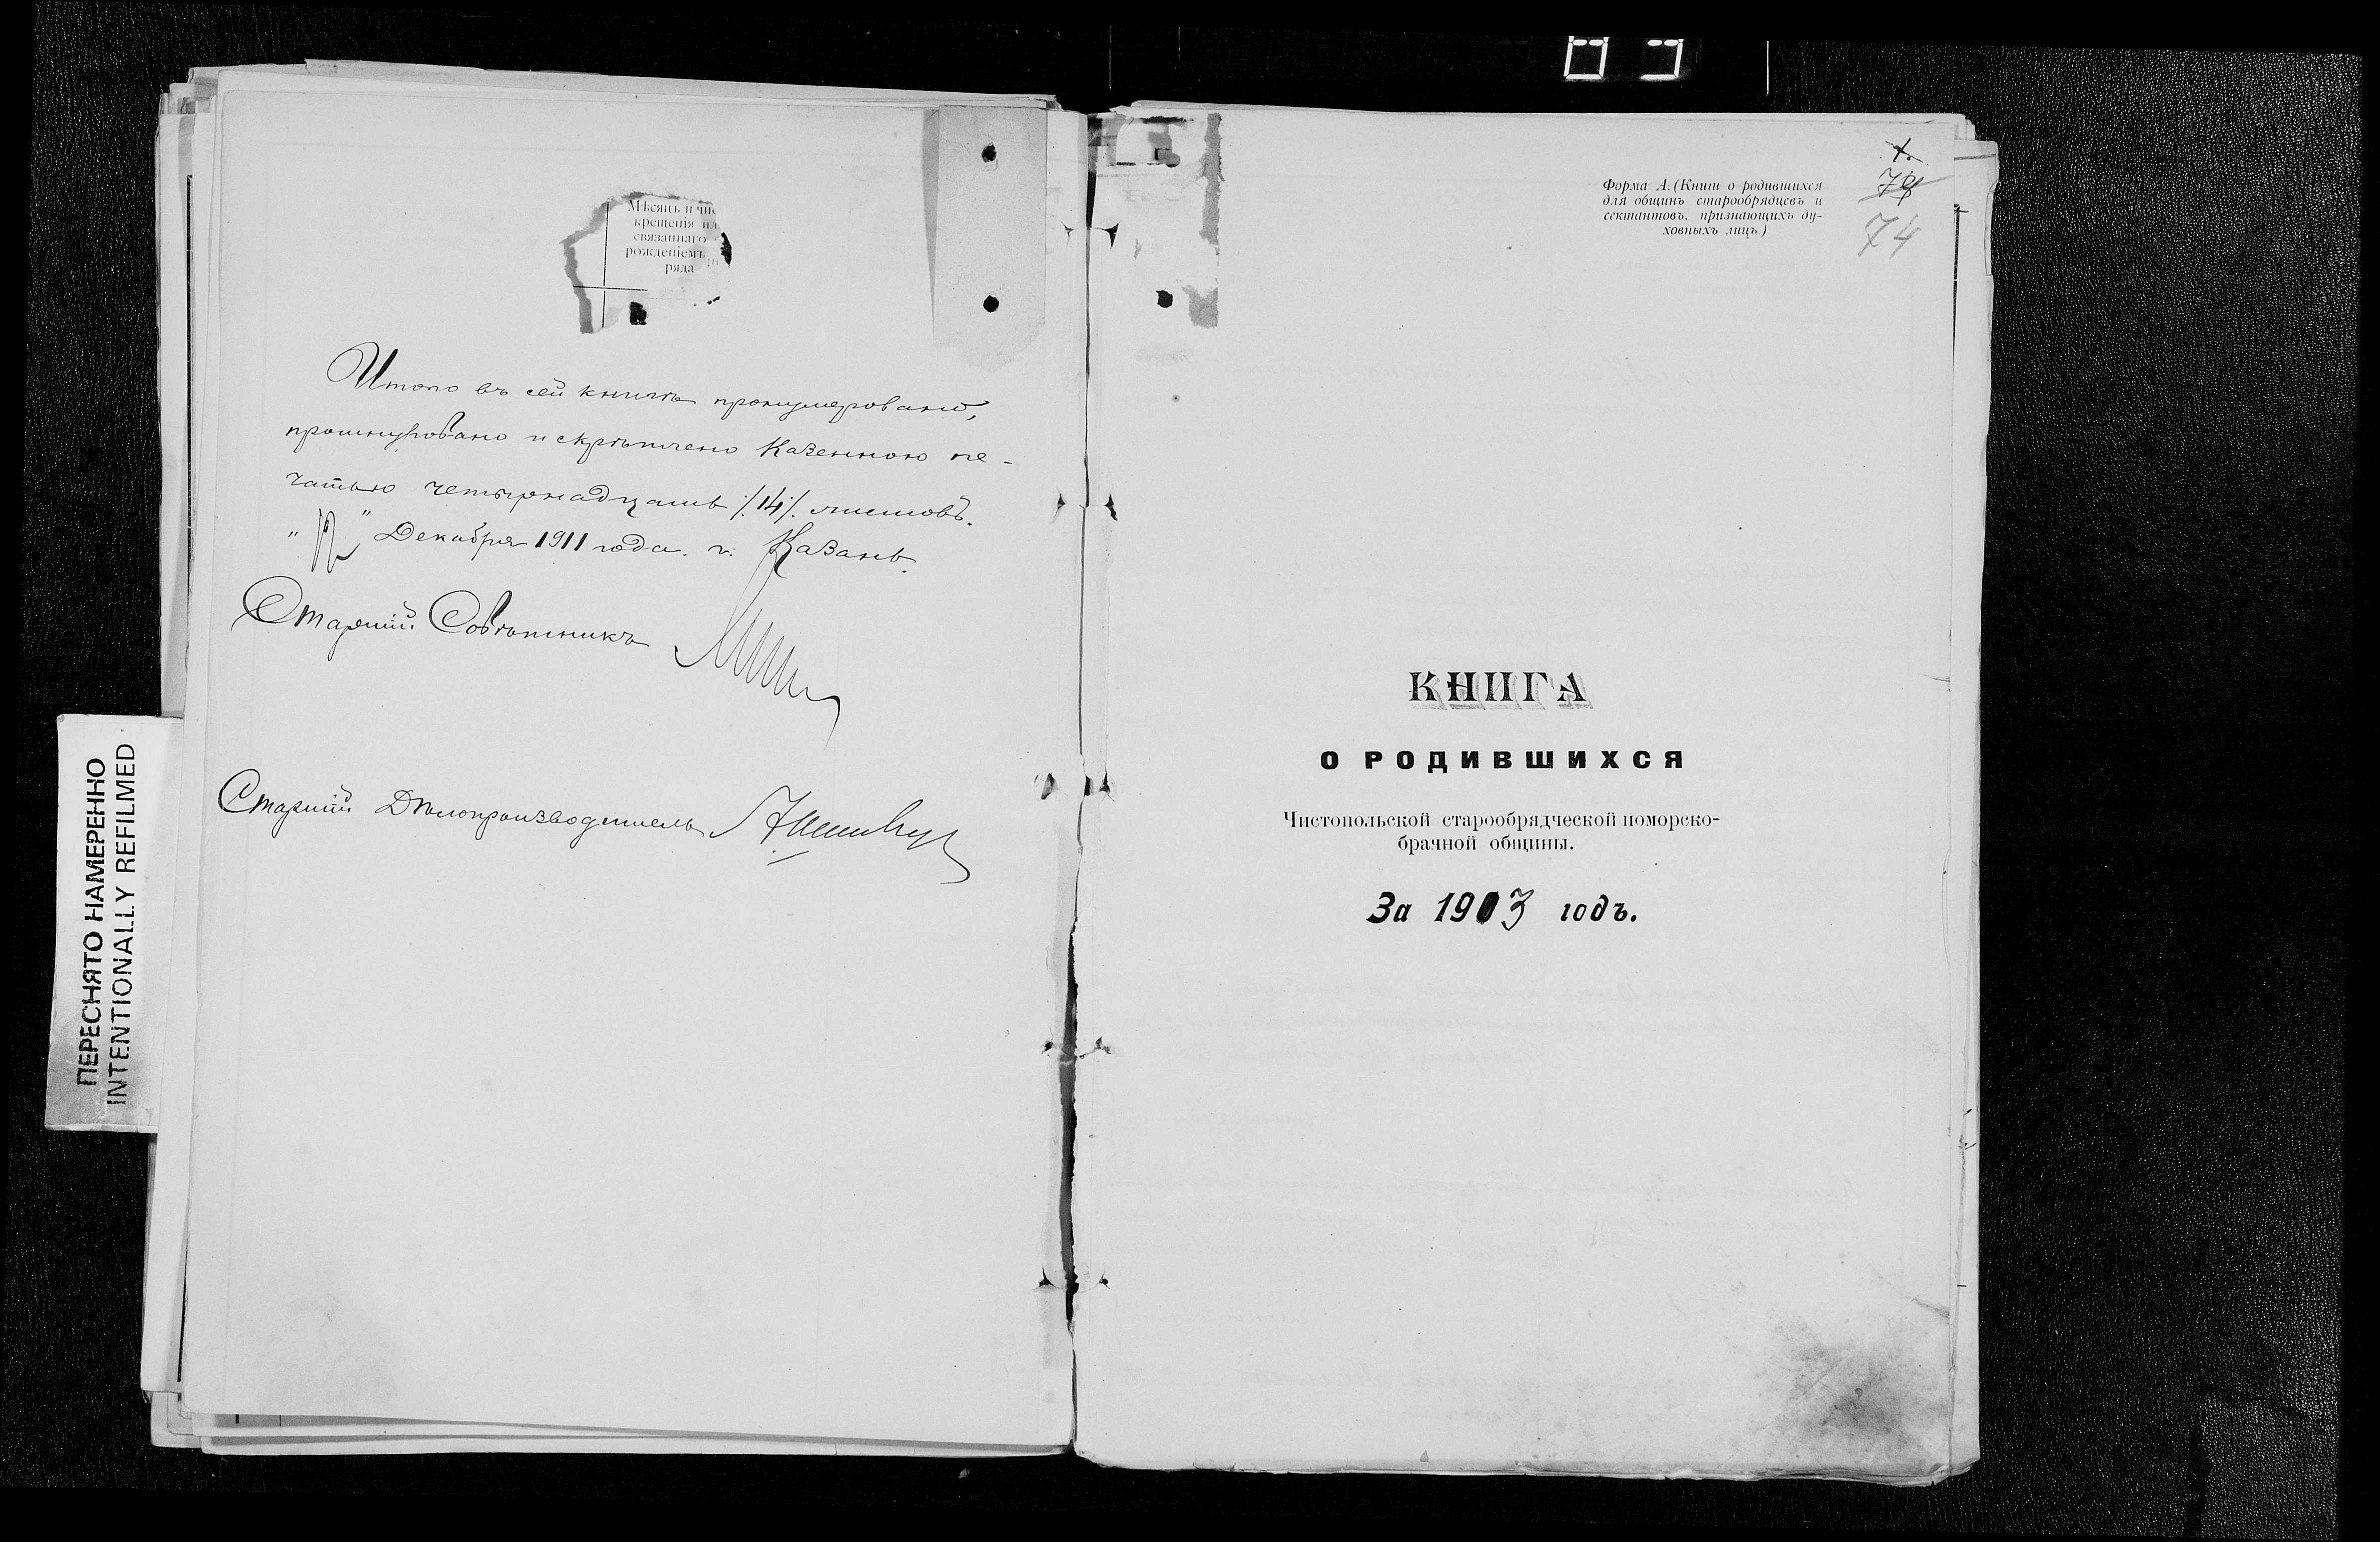 Мѣсяцъ и чис
крещенія ил
связаннаго
рожденіемъ
ряда
Итого въ сей книгѣ пронумеровано,
прошнуровано и скрѣплено казенною пе-
чатью четырнадцать /.14/. листовъ.
" " Декабря 1911 года. г. Казань.
Старшій Совѣтникъ
Старшій Дѣлопроизводитель
ПЕРЕСНЯТО НАМЕРЕННО
INTENTIONALLY REFILMED
1.
74
Форма А. (Книги о родившихся
для общинъ старообрядцевъ и
сектантовъ, признающихъ ду-
ховныхъ лицъ.)
КНИГА
О РОДИВШИХСЯ
Чистопольской старообрядческой поморско-
брачной общины.
За 1903 годъ.